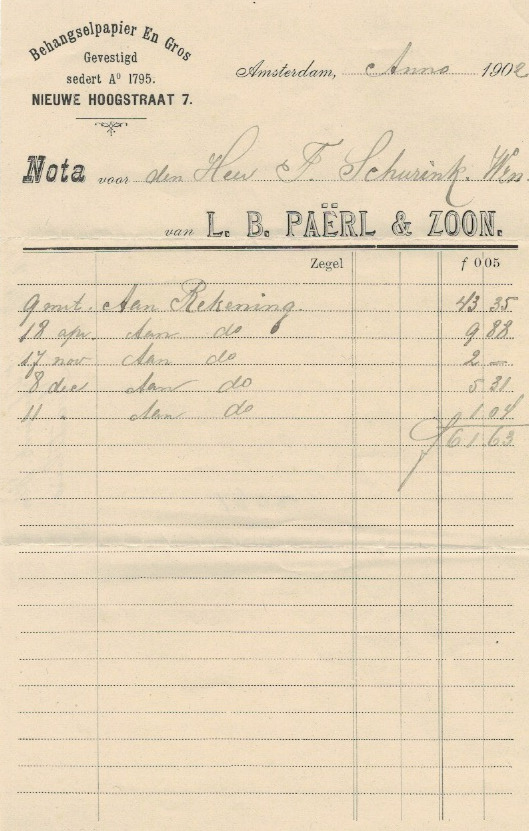 Behangselpapier En Gros
Gevestigd
sedert Aº 1795.
NIEUWE HOOGSTRAAT 7.
Amsterdam, Anno 1902
Nota voor den Heer F. Schurink. Wen
van L. B. PAËRL & ZOON.
Zegel f 0 05
9 mrt. Aan Rekening 43 35
18 apr. Aan do 9 88
17 nov Aan do 2 —
8 dec Aan do 5 31
11 " Aan do 1 04
f 61 63